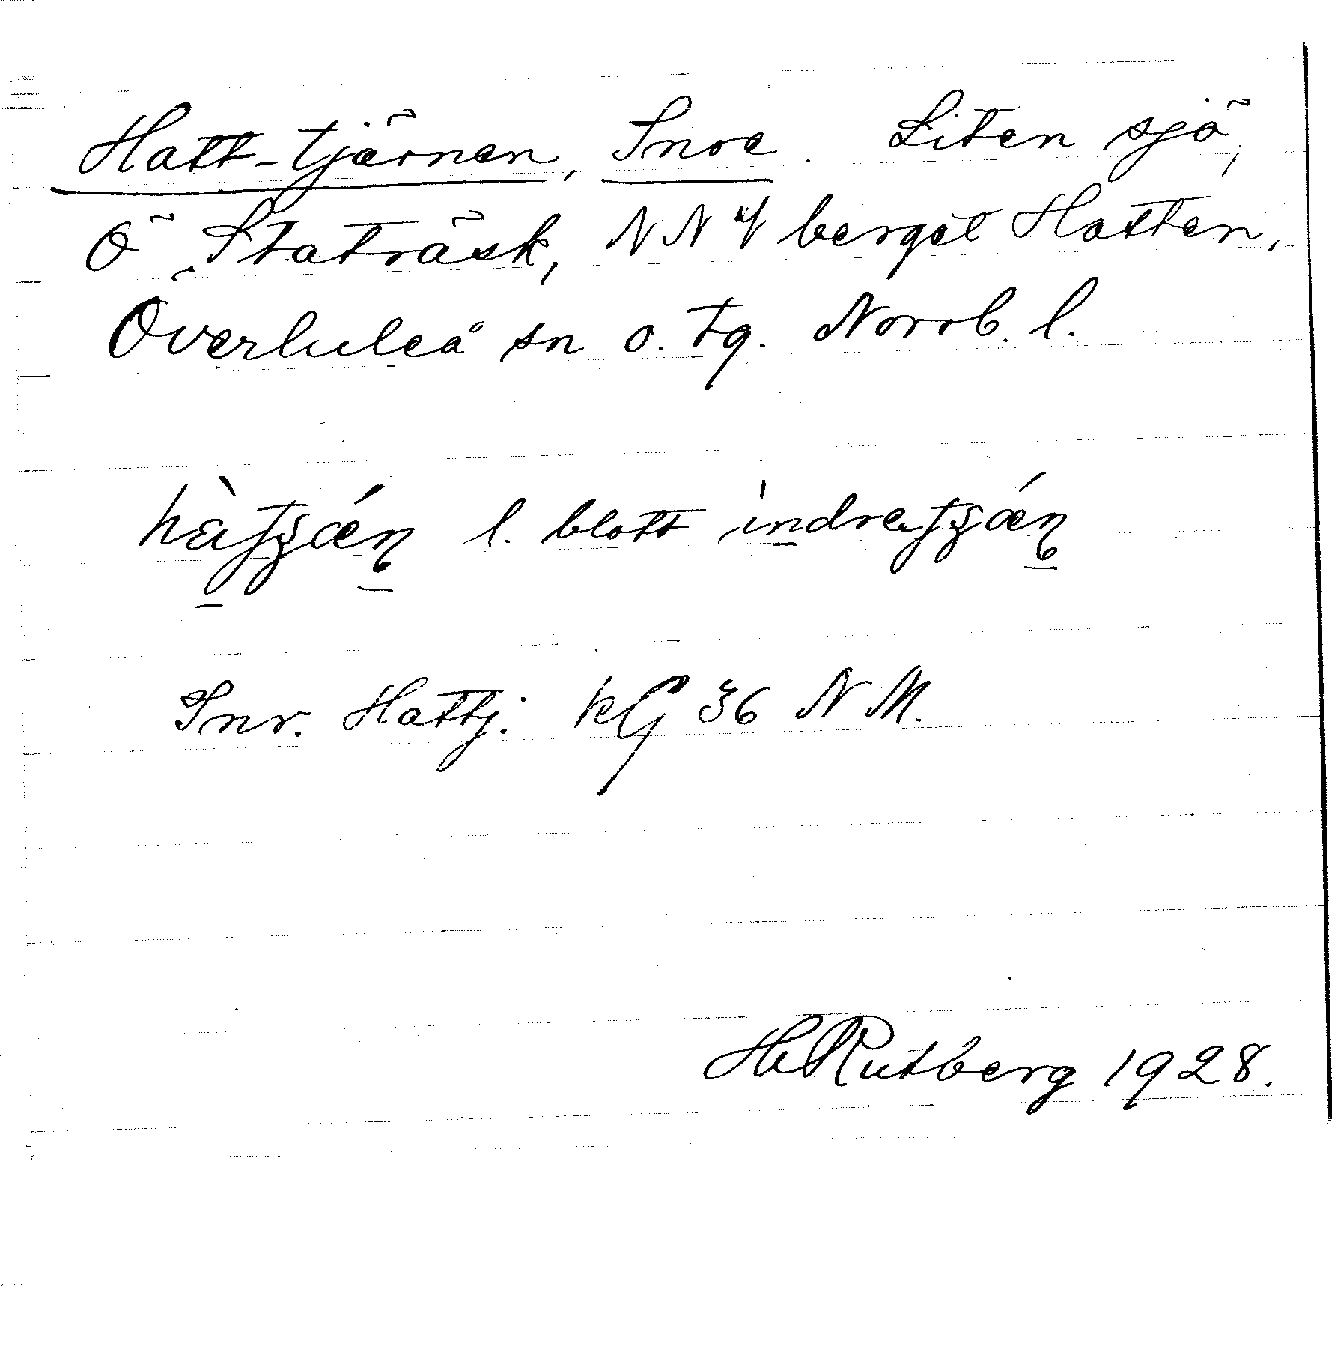 Hatt-tjärnen, Inre. Liten sjö,
Ö Staträsk, NNV berget Hatten,
Överluleå sn o. tg. Norrb. l.
l. blott
Inr. Hattj. kG 36 NM.
H. Rutberg 1928.